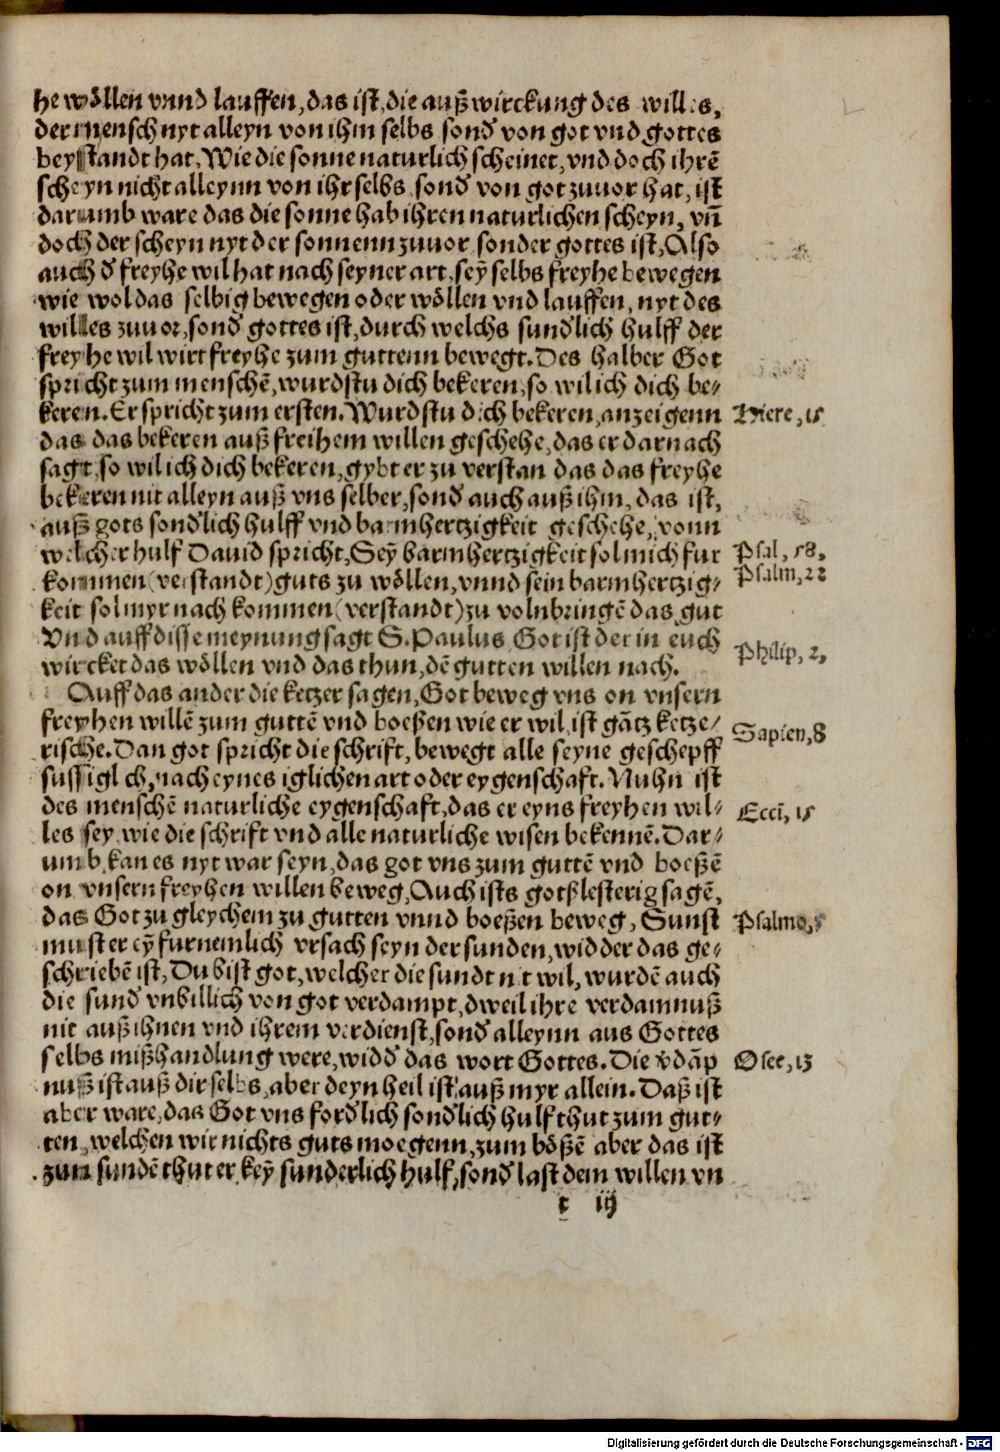 he wöllen vnnd lauffen, das ist, die außwirckung des willes,
der mensch nyt alleyn von ihm selbs sond̛ von got vnd gottes
beystandt hat, Wie die sonne naturlich scheinet, vnd doch ihrē
scheyn nicht alleynn von ihr selbs sond̛ von got zuuor hat, ist
darumb ware das die sonne hab ihren naturlichen scheyn, vñ
doch der scheyn nyt der sonnenn zuuor sonder gottes ist, Also
auch d̛ freyhe wil hat nach seyner art, sey̅ selbs freyhe bewegen
wie wol das selbig bewegen oder wöllen vnd lauffen, nyt des
willes zuuor, sond̛ gottes ist, durch welchs sund̛lich hulff der
freyhe wil wirt freyhe zum guttenn bewegt. Des halber Got
spricht zum menschē, wurdstu dich bekeren, so wil ich dich be-
keren. Er spricht zum ersten. Wurdstu dich bekeren, anzeigenn
Hiere, 15
das das bekeren auß freihem willen geschehe, das er darnach
sagt, so wil ich dich bekeren, gybt er zu verstan das das freyhe
bekeren nit alleyn auß vns selber, sond̛ auch auß ihm, das ist,
auß gots sond̛lich hulff vnd barmhertzigkeit geschehe, vonn
welcher hulf Dauid spricht, Sey̅ barmhertzigkeit sol mich fur
Psal, 58,
kommen (verstandt) guts zu wöllen, vnnd sein barmhertzig-
Psalm, 22
keit sol myr nach kommen (verstandt) zu volnbringē das gut
Vnd auff disse meynung sagt S. Paulus Got ist der in euch
wircket das wöllen vnd das thun, dē gutten willen nach.
Philip, 2,
Auff das ander die ketzer sagen, Got beweg vns on vnsern
freyhen willē zum guttē vnd boeßen wie er wil, ist gātz ketze-
rische. Dan got spricht die schrift, bewegt alle seyne geschepff
Sapien, 8
sussiglich, nach eynes iglichen art oder eygenschaft. Nuhn ist
des menschē naturliche eygenschaft, das er eyns freyhen wil-
Ecci, 15
les sey, wie die schrift vnd alle naturliche wisen bekennē. Dar-
umb kan es nyt war seyn, das got vns zum guttē vnd boeßē
on vnsern freyhen willen beweg, Auch ists gotßlesterig sagē,
das Got zu gleychem zu gutten vnnd boeßen beweg, Sunst
Psalmo, 5
must er ey̅ furnemlich vrsach seyn der sunden, widder das ge-
schriebē ist, Du bist got, welcher die sundt nit wil, wurdē auch
die sund vnbillich von got verdampt, dweil ihre verdamnuß
nit auß ihnen vnd ihrem verdienst, sond̛ alleynn aus Gottes
selbs mißhandlung were, widd̛ das wort Gottes. Die v̛dāp
Osee, 13
nuß ist auß dir selbs, aber deyn heil ist auß myr allein. Daß ist
aber ware, das Got vns ford̛lich sond̛lich hulf thut zum gut-
ten, welchen wir nichts guts moegenn, zum bößē aber das ist
zun sundē thut er key̅ sunderlich hulf, sond̛ last dem willen vn
t iij
Digitalisierung gefördert durch die Deutsche Forschungsgemeinschaft - DFG